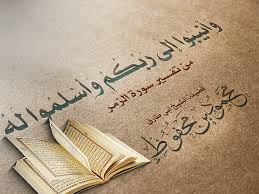 وأنيبوا إلى ربكم وأسلموا له
من تفسير سورة الزمر
محمود بن محفوظ